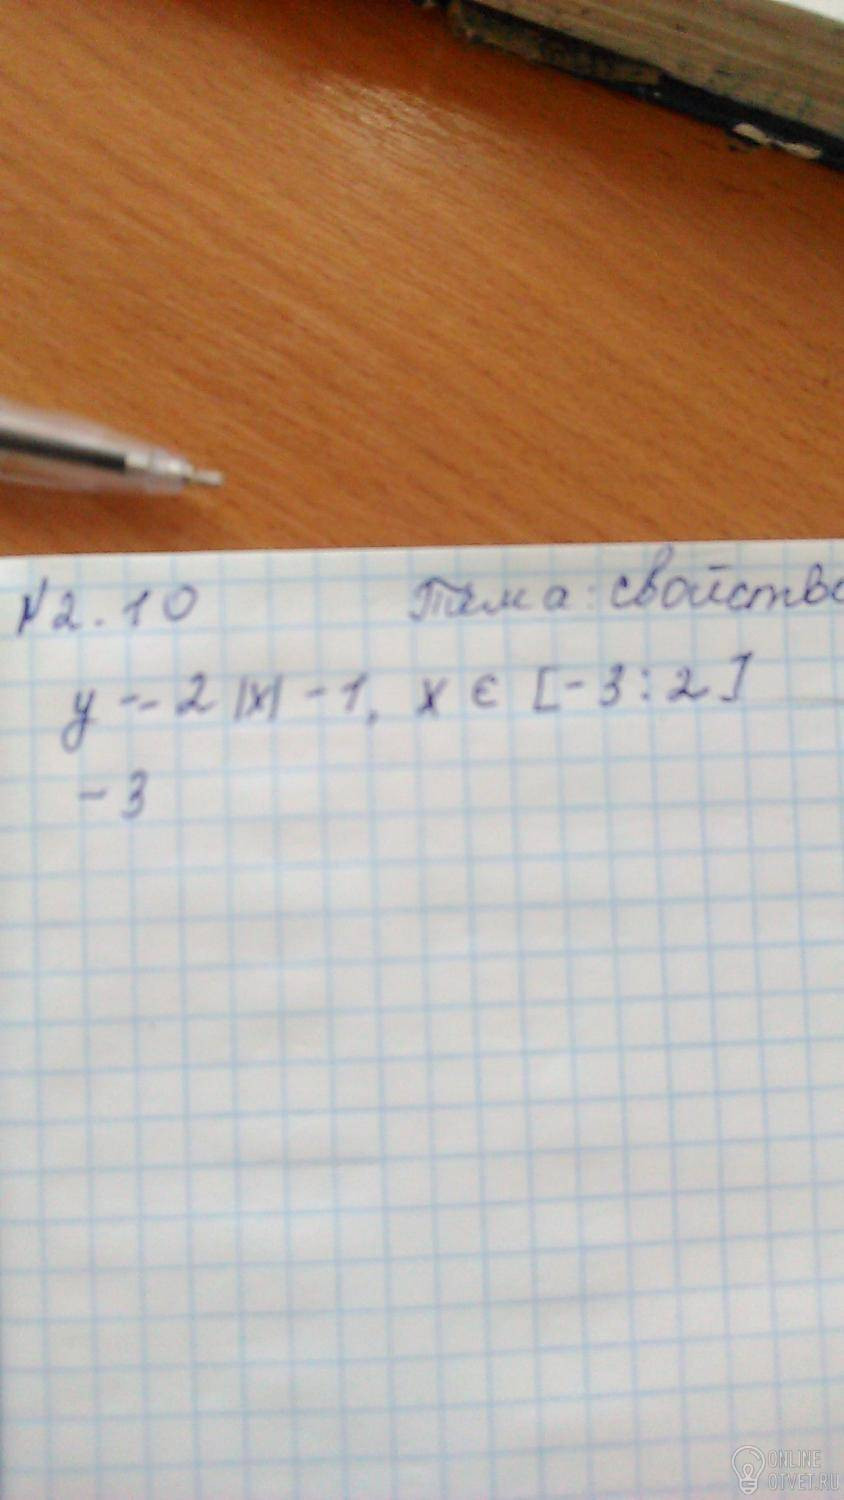 N2.10 Тема: свойство
y -- 2|x| - 1, x ∈ [-3:2]
-3
ONLINE
OTVET.RU